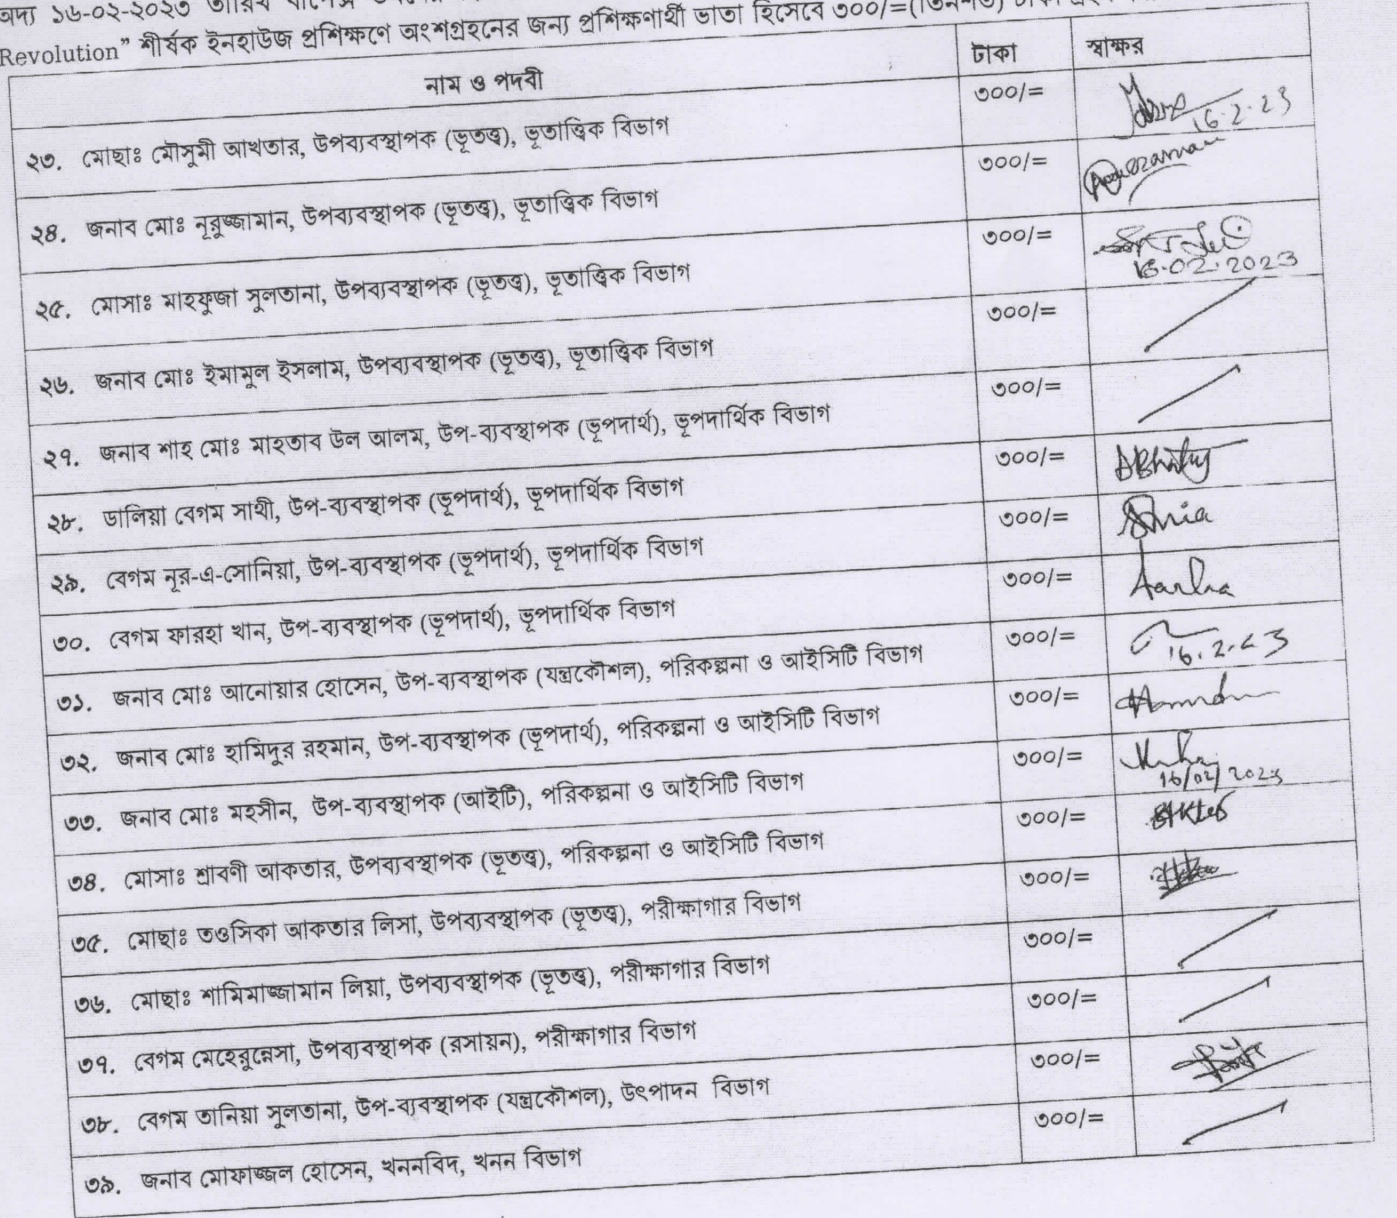 অদ্য ১৬-০২-২০২৩ তারিখ
Revolution” শীর্ষক ইনহাউজ প্রশিক্ষণে অংশগ্রহনের জন্য প্রশিক্ষণার্থী ভাতা হিসেবে ৩০০/=(তিনশত) টাকা
নাম ও পদবী টাকা স্বাক্ষর
২৩. মোছাঃ মৌসুমী আখতার, উপব্যবস্থাপক (ভূতত্ত্ব), ভূতাত্ত্বিক বিভাগ ৩০০/= 16.2.23
২৪. জনাব মোঃ নূরুজ্জামান, উপব্যবস্থাপক (ভূতত্ত্ব), ভূতাত্ত্বিক বিভাগ ৩০০/=
২৫. মোসাঃ মাহফুজা সুলতানা, উপব্যবস্থাপক (ভূতত্ত্ব), ভূতাত্ত্বিক বিভাগ ৩০০/= 16.02.2023
২৬. জনাব মোঃ ইমামুল ইসলাম, উপব্যবস্থাপক (ভূতত্ত্ব), ভূতাত্ত্বিক বিভাগ ৩০০/=
২৭. জনাব শাহ মোঃ মাহতাব উল আলম, উপ-ব্যবস্থাপক (ভূপদার্থ), ভূপদার্থিক বিভাগ ৩০০/=
২৮. ডালিয়া বেগম সাথী, উপ-ব্যবস্থাপক (ভূপদার্থ), ভূপদার্থিক বিভাগ ৩০০/=
২৯. বেগম নূর-এ-সোনিয়া, উপ-ব্যবস্থাপক (ভূপদার্থ), ভূপদার্থিক বিভাগ ৩০০/=
৩০. বেগম ফারহা খান, উপ-ব্যবস্থাপক (ভূপদার্থ), ভূপদার্থিক বিভাগ ৩০০/=
৩১. জনাব মোঃ আনোয়ার হোসেন, উপ-ব্যবস্থাপক (যন্ত্রকৌশল), পরিকল্পনা ও আইসিটি বিভাগ ৩০০/= 16.2.23
৩২. জনাব মোঃ হামিদুর রহমান, উপ-ব্যবস্থাপক (ভূপদার্থ), পরিকল্পনা ও আইসিটি বিভাগ ৩০০/=
৩৩. জনাব মোঃ মহসীন, উপ-ব্যবস্থাপক (আইটি), পরিকল্পনা ও আইসিটি বিভাগ ৩০০/= 16/02/2023
৩৪. মোসাঃ শ্রাবণী আকতার, উপব্যবস্থাপক (ভূতত্ত্ব), পরিকল্পনা ও আইসিটি বিভাগ ৩০০/=
৩৫. মোছাঃ তওসিকা আকতার লিসা, উপব্যবস্থাপক (ভূতত্ত্ব), পরীক্ষাগার বিভাগ ৩০০/=
৩৬. মোছাঃ শামিমাজ্জামান লিয়া, উপব্যবস্থাপক (ভূতত্ত্ব), পরীক্ষাগার বিভাগ ৩০০/=
৩৭. বেগম মেহেরুন্নেসা, উপব্যবস্থাপক (রসায়ন), পরীক্ষাগার বিভাগ ৩০০/=
৩৮. বেগম তানিয়া সুলতানা, উপ-ব্যবস্থাপক (যন্ত্রকৌশল), উৎপাদন বিভাগ ৩০০/=
৩৯. জনাব মোফাজ্জল হোসেন, খননবিদ, খনন বিভাগ ৩০০/=